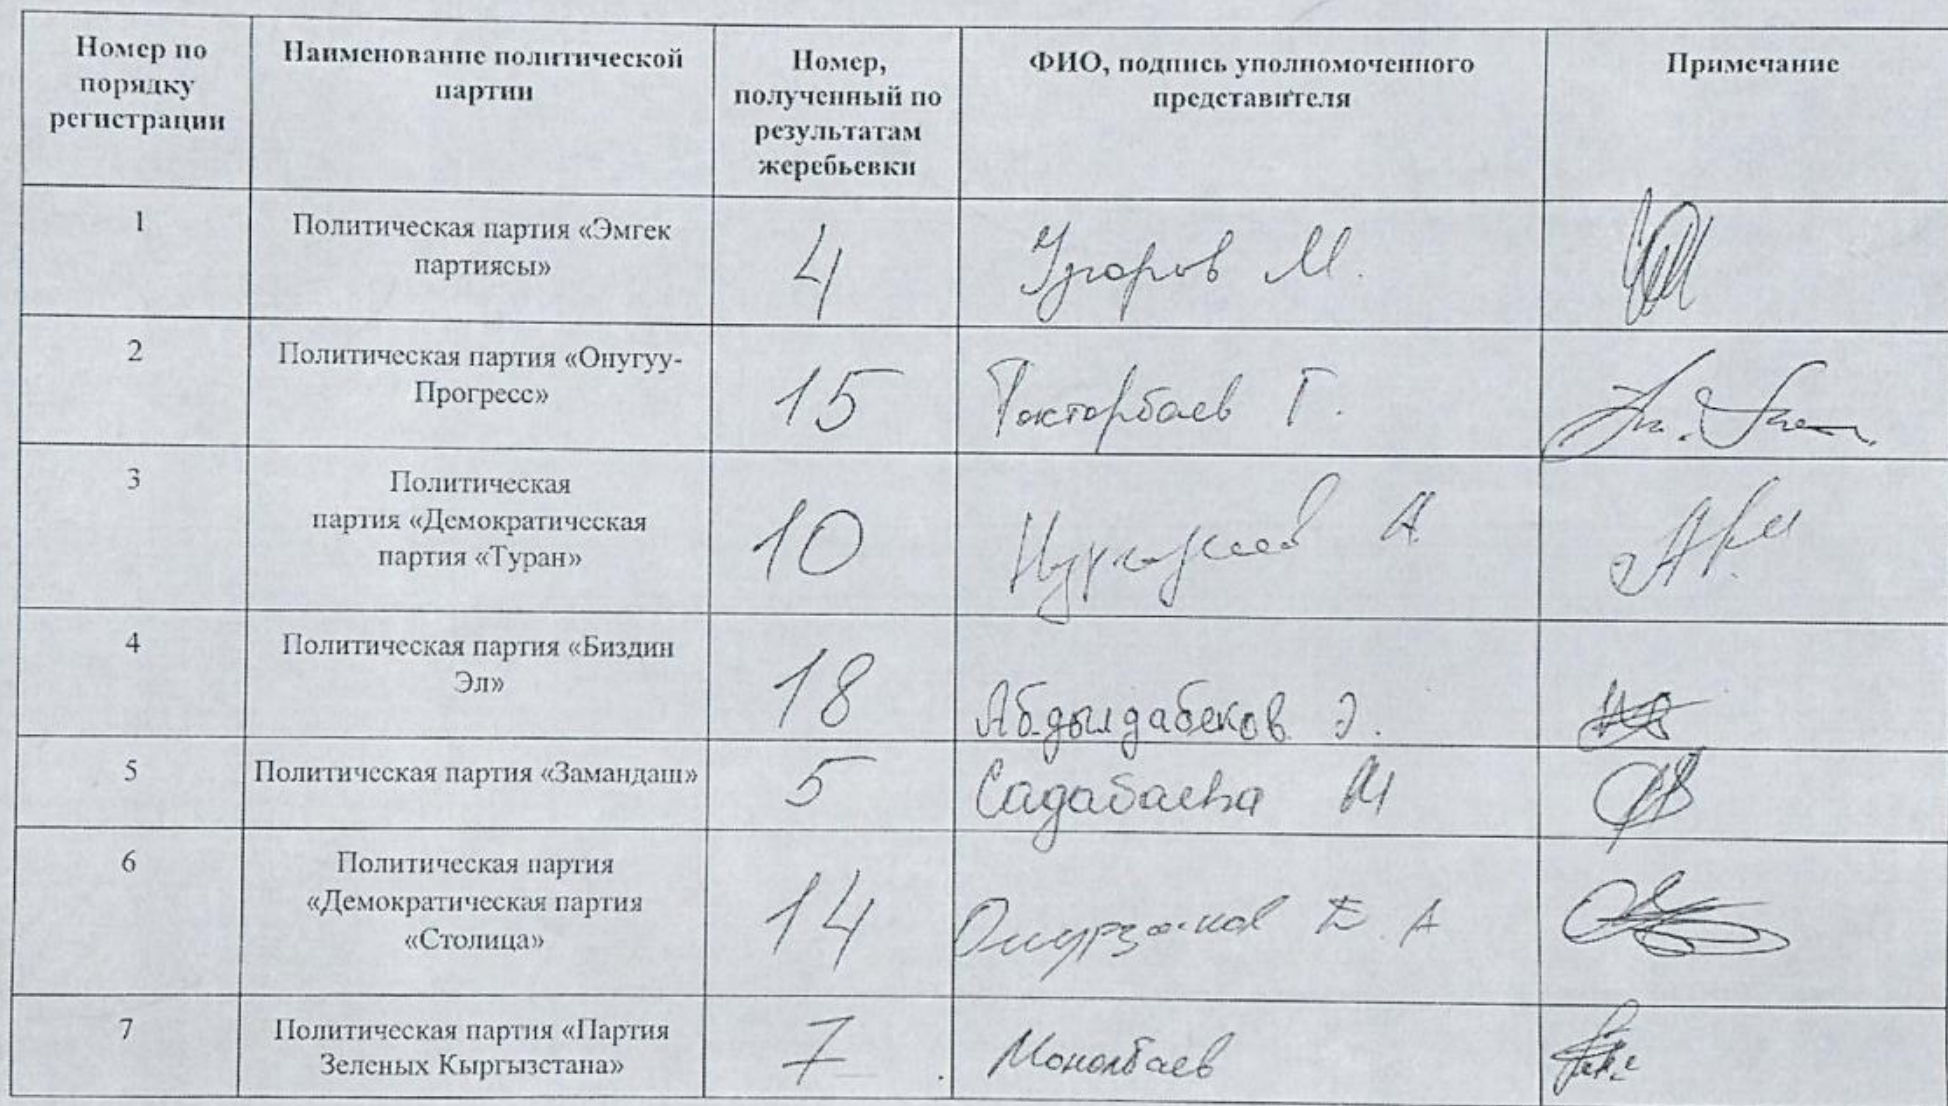 Номер по
порядку
регистрации
Наименование политической
партии
Номер,
полученный по
результатам
жеребьевки
ФИО, подпись уполномоченного
представителя
Примечание
1
Политическая партия «Эмгек
партиясы»
4
М.
2
Политическая партия «Онугуу-
Прогресс»
15
Токторбаев Г.
3
Политическая
партия «Демократическая
партия «Туран»
10
А
4
Политическая партия «Биздин
Эл»
18
Абдылдабеков Э.
5
Политическая партия «Замандаш»
5
Садабаева М
6
Политическая партия
«Демократическая партия
«Столица»
14
Б. А
7
Политическая партия «Партия
Зеленых Кыргызстана»
7
Монолбаев